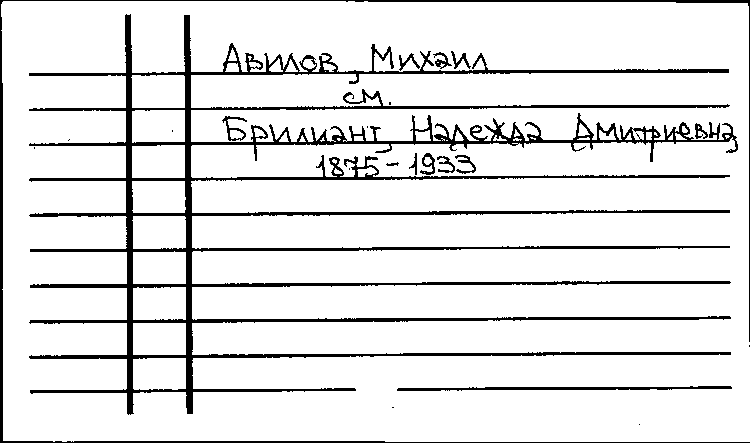 Авилов, Михаил
см.
Брилиант, Надежда Дмитриевна,
1875-1933